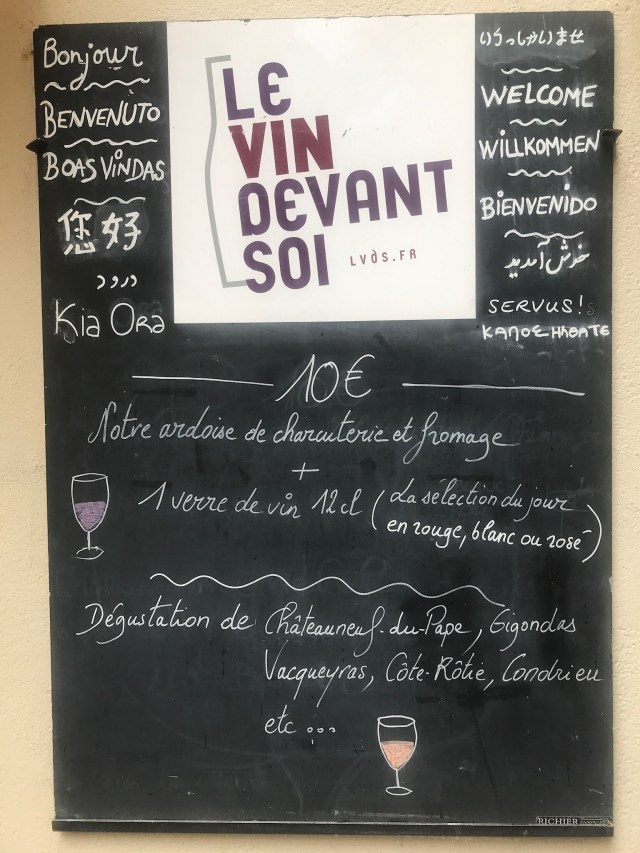 Bonjour
BENVENUTO
BOAS VINDAS
您好
درود
Kia Ora
LE
VIN
DEVANT
SOI
LVDS.FR
いらっしゃいませ
WELCOME
WILLKOMMEN
BIENVENIDO
خوش آمدید
SERVUS!
10€
Notre ardoise de charcuterie et fromage
+
1 verre de vin 12cl (La sélection du jour
en rouge, blanc ou rosé)
Dégustation de Châteauneuf-du-Pape, Gigondas
Vacqueyras, Côte-Rôtie, Condrieu
etc ...
RICHIER